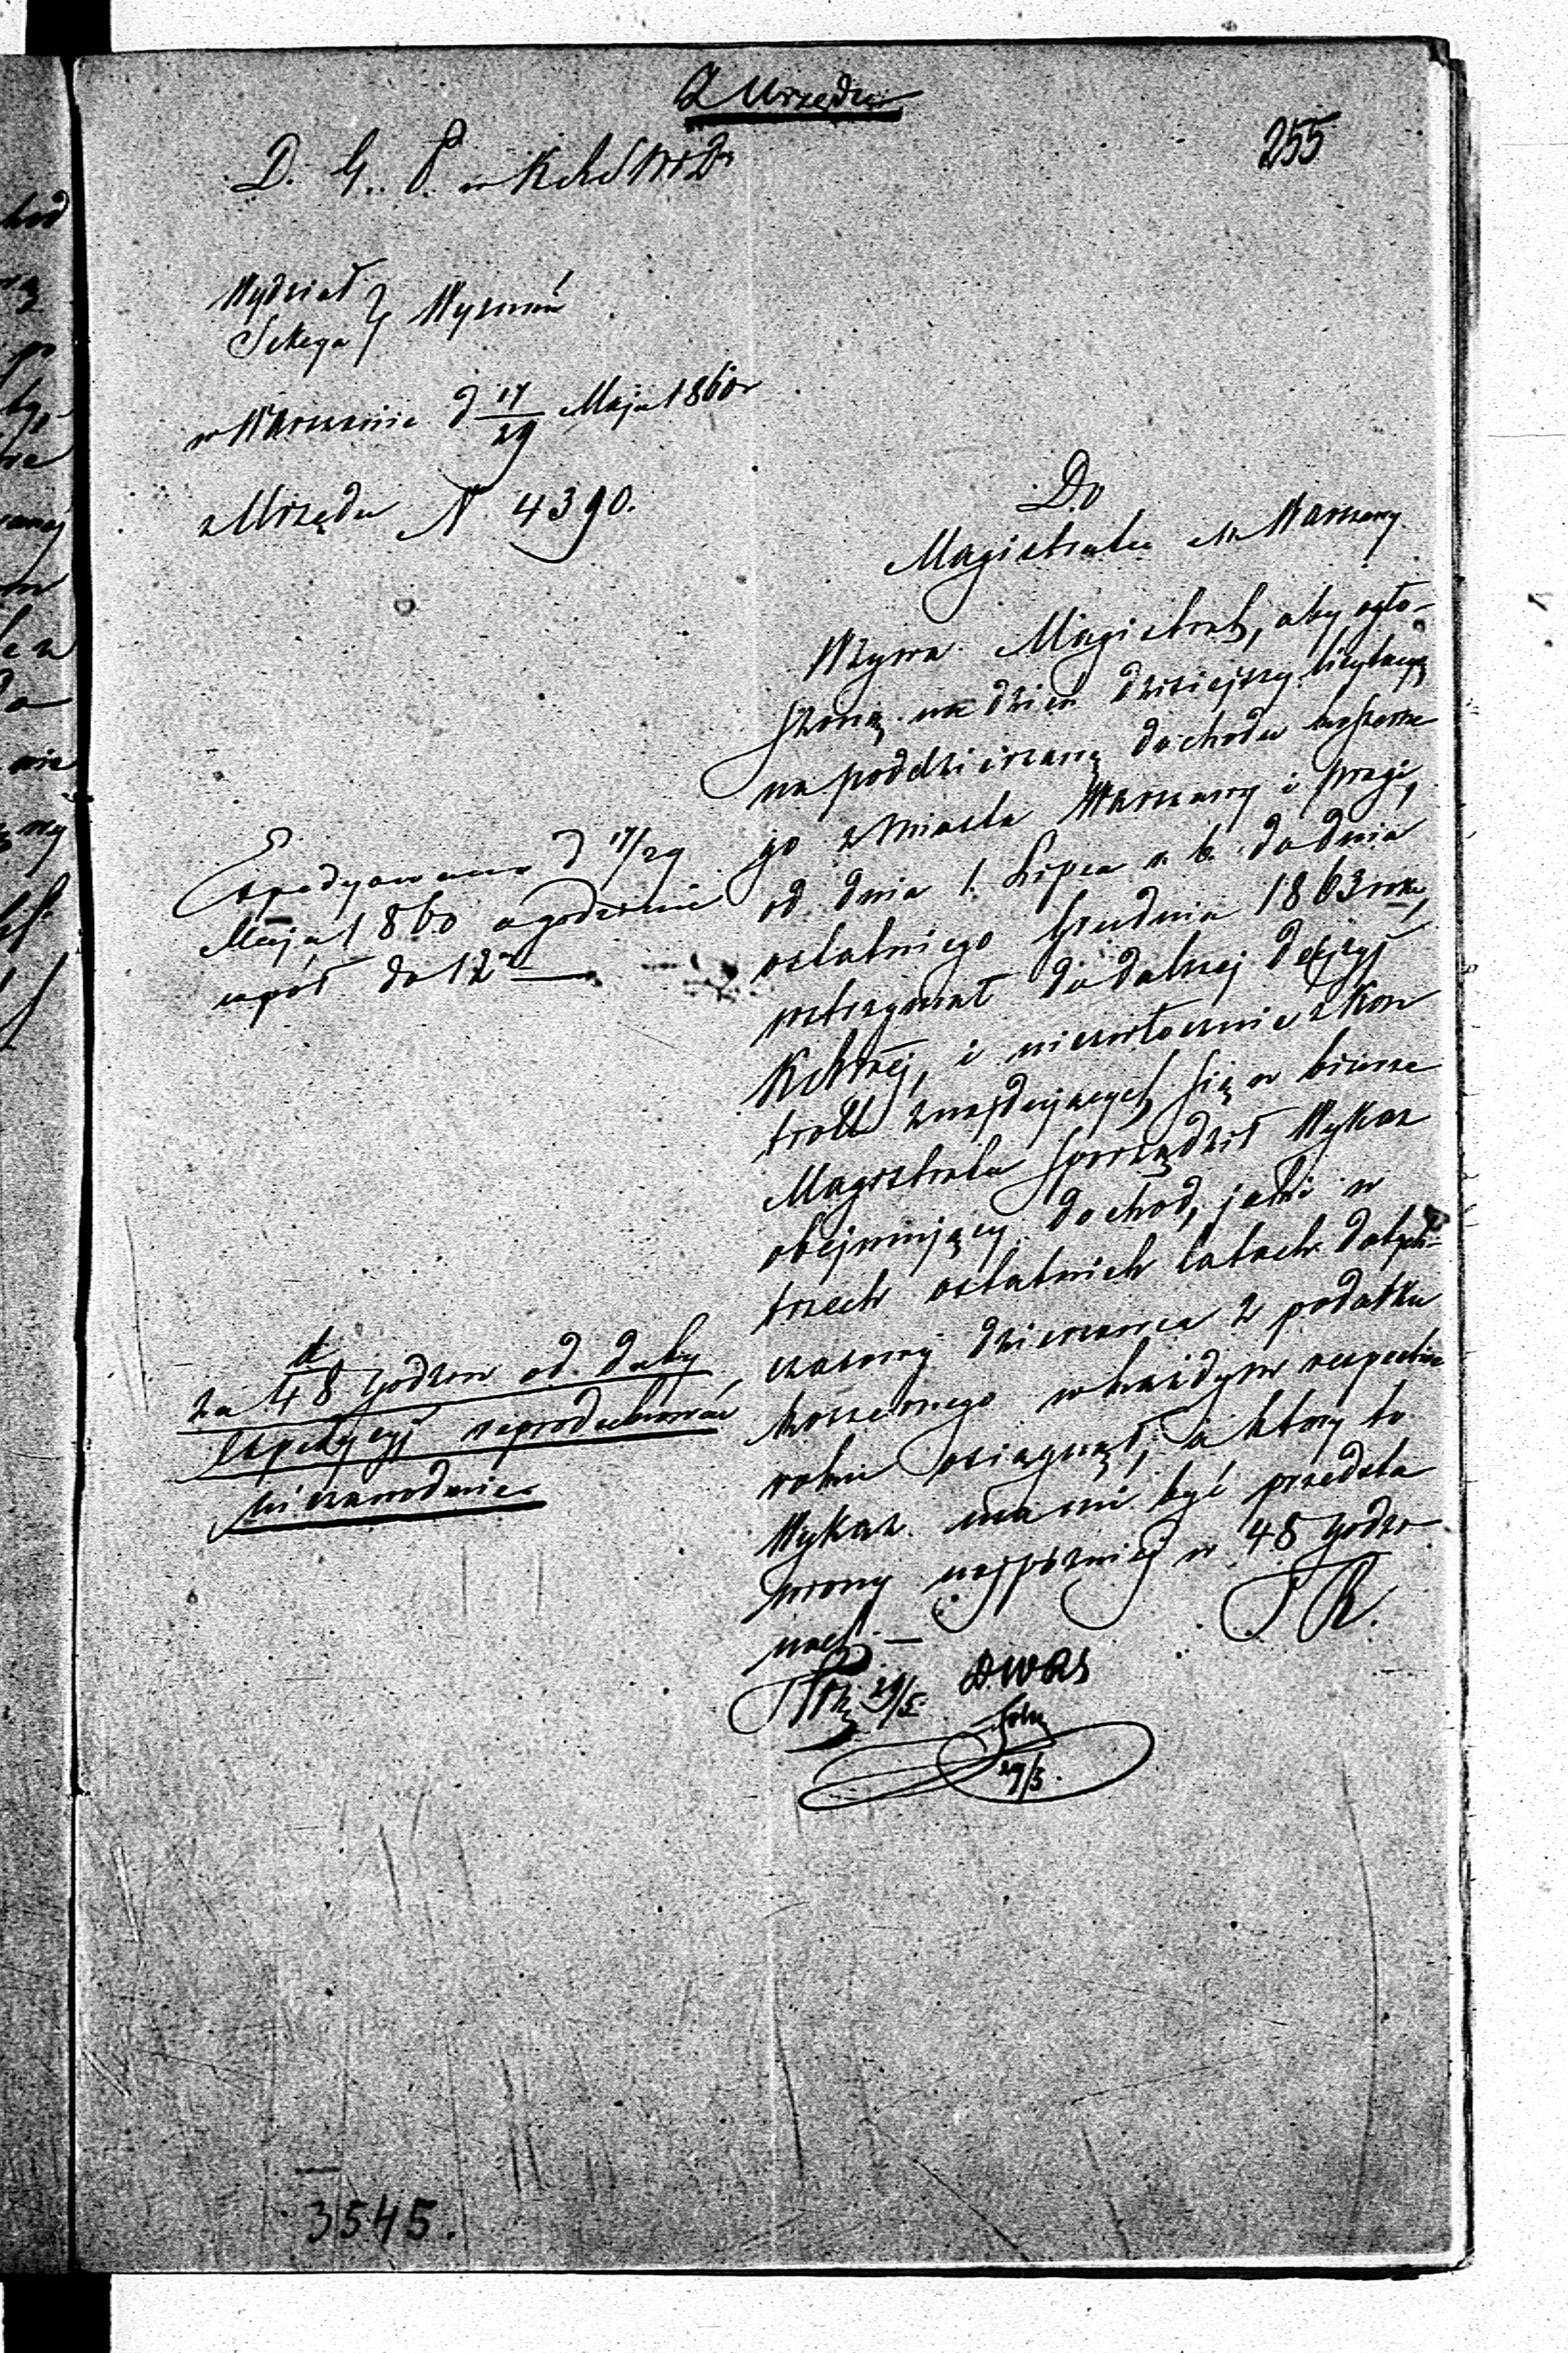 Z Urzędu
255
D. G. P. w K R S W i D
Wydział
Sekcya } Wyznań
w Warszawie d 17/29 Maja 1860 r
z Urzędu N 4390.
Do
Magistratu M Warszawy
Wzywa Magistrat, aby ogło-
szoną na dzień dzisiejszy licytacyą
na poddzierżawę dochodu koszerne
go z Miasta Warszawy i Pragi,
od dnia 1. Lipca r. b. do dnia
ostatniego Grudnia 1863 roku,
wstrzymał do dalszej decyzyi
i niezwłocznie z Kon
troll znajdujących się w biurze
Magistratu sporządził Wykaz
obejmujący dochód, jaki w
trzech ostatnich latach dotych-
czasowy dzierżawca z podatku
koszernego w każdym respective
roku osiągnął, a który to
Wykaz ma mi być przedsta
wiony najpóźniej w 48 godzi
nach. —
Expedyowano d 17/29
Maja 1860 o godzinie
wpół do 12
za 48 godzin od daty
expedycyi reprodukować
niezawodnie
29/5
29/5.
3545.